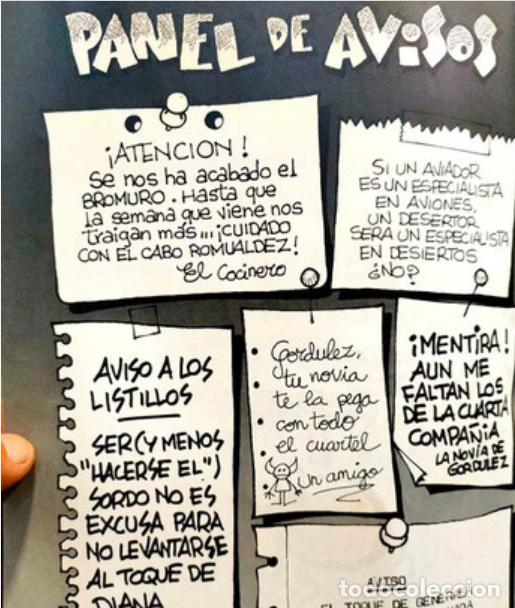 PANEL DE AVISOS
¡ATENCION!
Se nos ha acabado el
BROMURO. Hasta que
la semana que viene nos
traigan más....¡CUIDADO
CON EL CABO ROMUALDEZ!
El Cocinero
SI UN AVIADOR
ES UN ESPECIALISTA
EN AVIONES,
UN DESERTOR
SERA UN ESPECIALISTA
EN DESIERTOS
¿NO?
AVISO A LOS
LISTILLOS
SER (Y MENOS
"HACERSE EL")
SORDO NO ES
EXCUSA PARA
NO LEVANTARSE
AL TOQUE DE
DIANA
Gordulez,
tu novia
te la pega
con todo
el cuartel
un amigo
¡MENTIRA!
AUN ME
FALTAN LOS
DE LA CUARTA
COMPAÑIA
LA NOVIA DE
GORDULEZ
AVISO
EL TOQUE DE GENERALA
todocoleccion